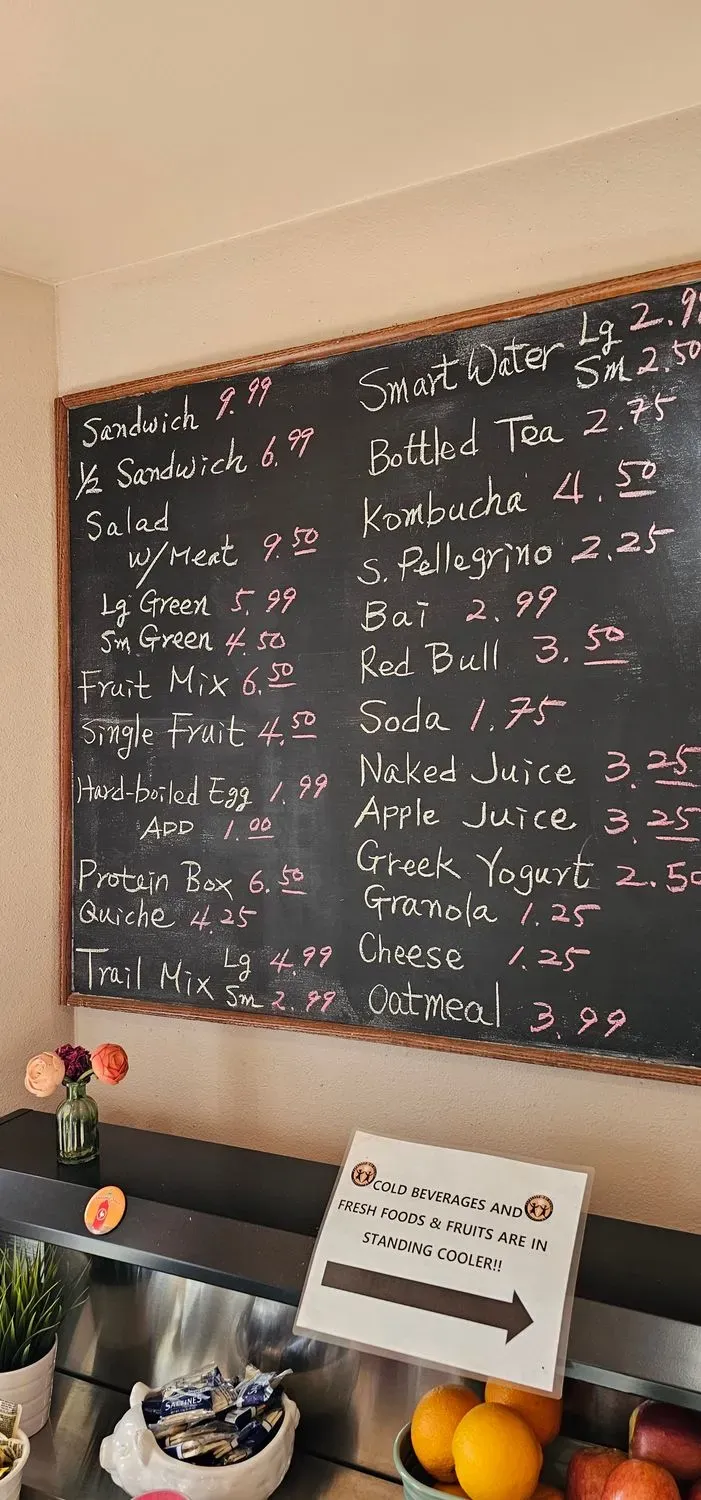 Sandwich 9.99
1/2 Sandwich 6.99
Salad
w/Meat 9.50
Lg Green 5.99
Sm Green 4.50
Fruit Mix 6.50
Single Fruit 4.50
Hard-boiled Egg 1.99
ADD 1.00
Protein Box 6.50
Quiche 4.25
Trail Mix Lg 4.99
Sm 2.99
Smart Water Lg 2.99
Sm 2.50
Bottled Tea 2.75
Kombucha 4.50
S. Pellegrino 2.25
Bai 2.99
Red Bull 3.50
Soda 1.75
Naked Juice 3.25
Apple Juice 3.25
Greek Yogurt 2.50
Granola 1.25
Cheese 1.25
Oatmeal 3.99
COLD BEVERAGES AND
FRESH FOODS & FRUITS ARE IN
STANDING COOLER!!
SALTINES